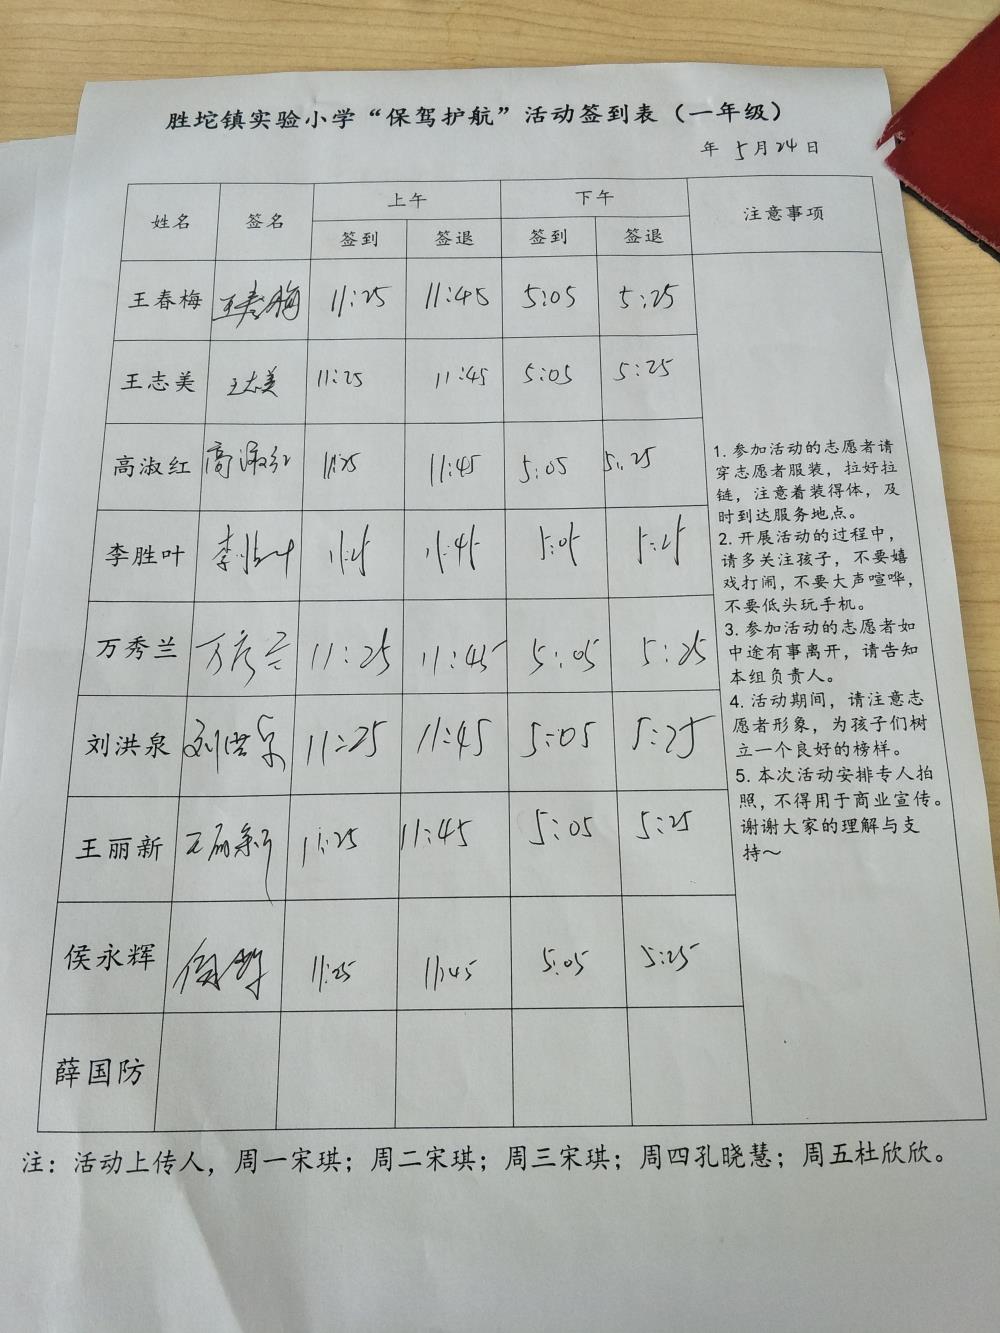 胜坨镇实验小学“保驾护航”活动签到表（一年级）
年 5月24日
姓名 签名 上午 下午 注意事项
签到 签退 签到 签退
王春梅 王春梅 11:25 11:45 5:05 5:25
王志美 王志美 11:25 11:45 5:05 5:25
高淑红 高淑红 11:25 11:45 5:05 5:25
李胜叶 李胜叶 11:25 11:45 5:05 5:25
万秀兰 万秀兰 11:25 11:45 5:05 5:25
刘洪泉 刘洪泉 11:25 11:45 5:05 5:25
王丽新 王丽新 11:25 11:45 5:05 5:25
侯永辉 11:25 11:45 5:05 5:25
薛国防
1. 参加活动的志愿者请
穿志愿者服装，拉好拉
链，注意着装得体，及
时到达服务地点。
2. 开展活动的过程中，
请多关注孩子，不要嬉
戏打闹，不要大声喧哗，
不要低头玩手机。
3. 参加活动的志愿者如
中途有事离开，请告知
本组负责人。
4. 活动期间，请注意志
愿者形象，为孩子们树
立一个良好的榜样。
5. 本次活动安排专人拍
照，不得用于商业宣传。
谢谢大家的理解与支
持～
注：活动上传人，周一宋琪；周二宋琪；周三宋琪；周四孔晓慧；周五杜欣欣。